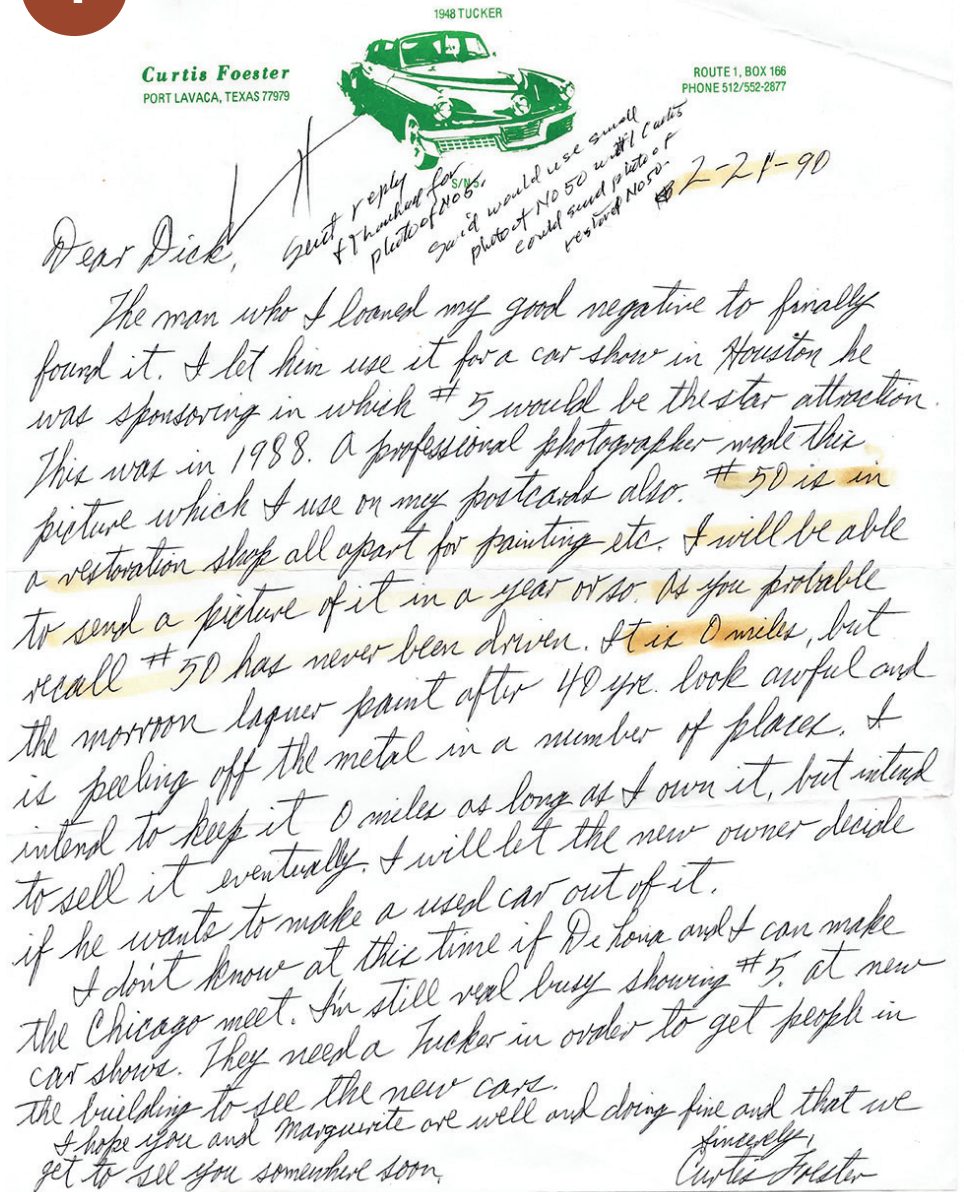 1948 TUCKER
Curtis Foester
PORT LAVACA, TEXAS 77979
ROUTE 1, BOX 166
PHONE 512/552-2877
S/N 5
Sent reply
+ thanked for
photo of No 5.
Said would use small
photo of No 50 until Curtis
could send photo of
restored No 50.
2-24-90
Dear Dick,
The man who I loaned my good negative to finally
found it. I let him use it for a car show in Houston he
was sponsoring in which #5 would be the star attraction.
This was in 1988. A professional photographer made this
picture which I use on my postcards also. #50 is in
a restoration shop all apart for painting etc. I will be able
to send a picture of it in a year or so. As you probable
recall #50 has never been driven. It is 0 miles, but
the morroon laquer paint after 40 yrs. look awful and
is peeling off the metal in a number of places. I
intend to keep it 0 miles as long as I own it, but intend
to sell it eventually. I will let the new owner decide
if he wants to make a used car out of it.
I don't know at this time if and I can make
the Chicago meet. I'm still real busy showing #5. at new
car shows. They need a Tucker in order to get people in
the building to see the new cars.
I hope you and Marguerite are well and doing fine and that we
get to see you somewhere soon.
Sincerely,
Curtis Foester